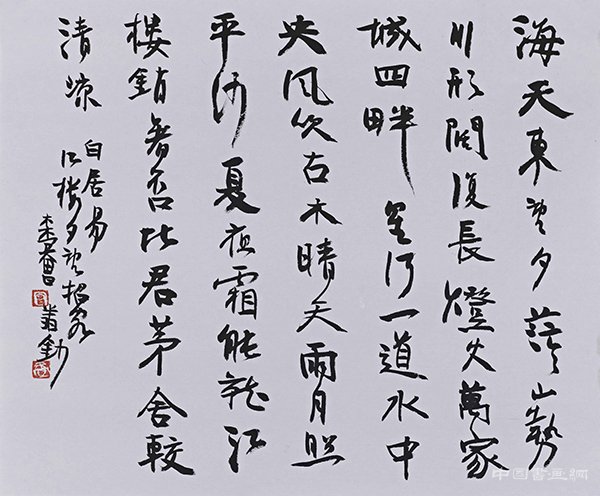 海天東望夕茫々山勢
川形闊復長燈火萬家
城四畔星河一道水中
央風吹古木晴天雨月照
平沙夏夜霜能就江
樓銷暑否比君茅舍較
清涼
白居易
江樓夕望招客
中国書画網